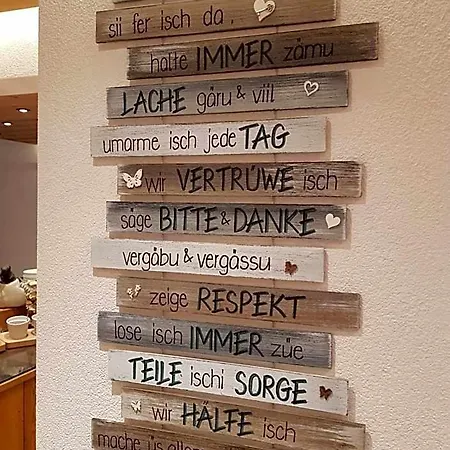 sii fer isch da,
halte IMMER zämu
LACHE gäru & viil
umarme isch jede TAG
wir VERTRÜWE isch
säge BITTE & DANKE
vergäbu & vergässu
zeige RESPEKT
lose isch IMMER züe
TEILE ischi SORGE
wir HÄLFE isch
mache üs